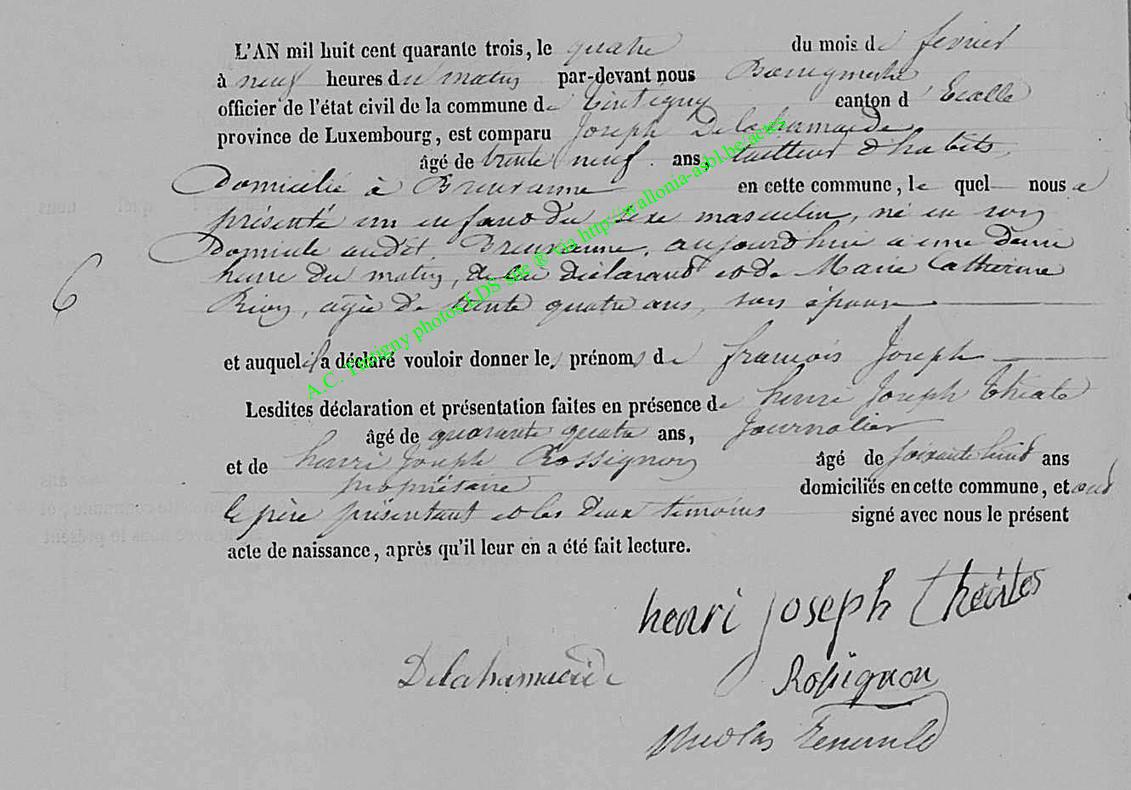 L'AN mil huit cent quarante trois, le quatre du mois de fevrier
à neuf heures du matin par-devant nous Bourgmestre
officier de l'état civil de la commune de Tintigny canton d'Etalle
province de Luxembourg, est comparu Joseph Delahamaide
âgé de trente neuf ans, tailleur d'habits,
Domicilié à Breuvanne en cette commune, le quel nous a
présenté un enfant du sexe masculin, né en son
Domicile audit Breuvanne, aujourd'hui à une demi
heure du matin, de lui déclarant et de Marie Catherine
âgée de trente quatre ans, son épouse
6
et auquel il a déclaré vouloir donner les prénoms de francois Joseph
Lesdites déclaration et présentation faites en présence de henri Joseph
âgé de quarante quatre ans, Journalier
et de henri Joseph Rossignon âgé de soixante huit ans
propriétaire domiciliés en cette commune, et ont
le père présentant et les deux témoins signé avec nous le présent
acte de naissance, après qu'il leur en a été fait lecture.
henri joseph
Delahamaide Rossignon
Nicolas
A.C. Tintigny photos LDS site ® via http://wallonia-asbl.be/actes